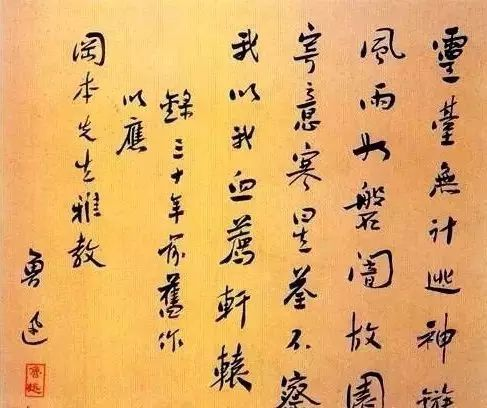 靈臺無計逃神
風雨如磐闇故園
寄意寒星荃不察
我以我血薦軒轅
錄三十年前舊作
以應
岡本先生雅教
魯迅
魯迅